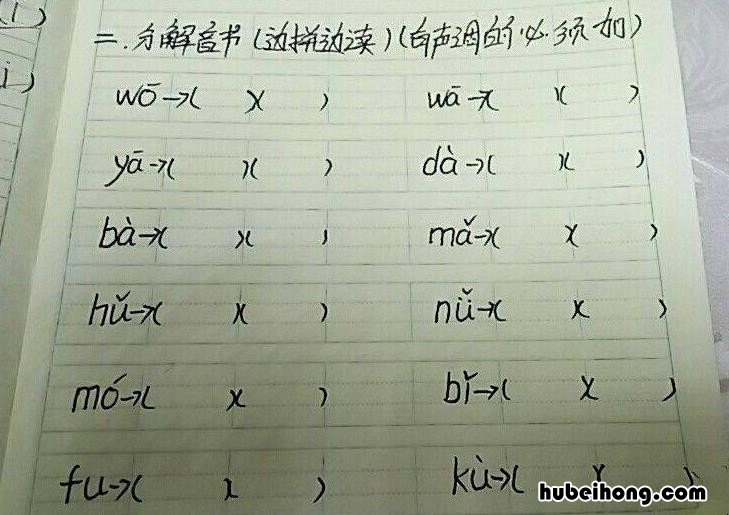 (i)
i)
二.分解音节(边拼边读)(有声调的必须加)
wō→( )( ) wā→( )( )
yā→( )( ) dà→( )( )
bà→( )( ) mǎ→( )( )
hǔ→( )( ) nǚ→( )( )
mó→( )( ) bǐ→( )( )
fu→( )( ) kù→( )( )
hubeihong.com